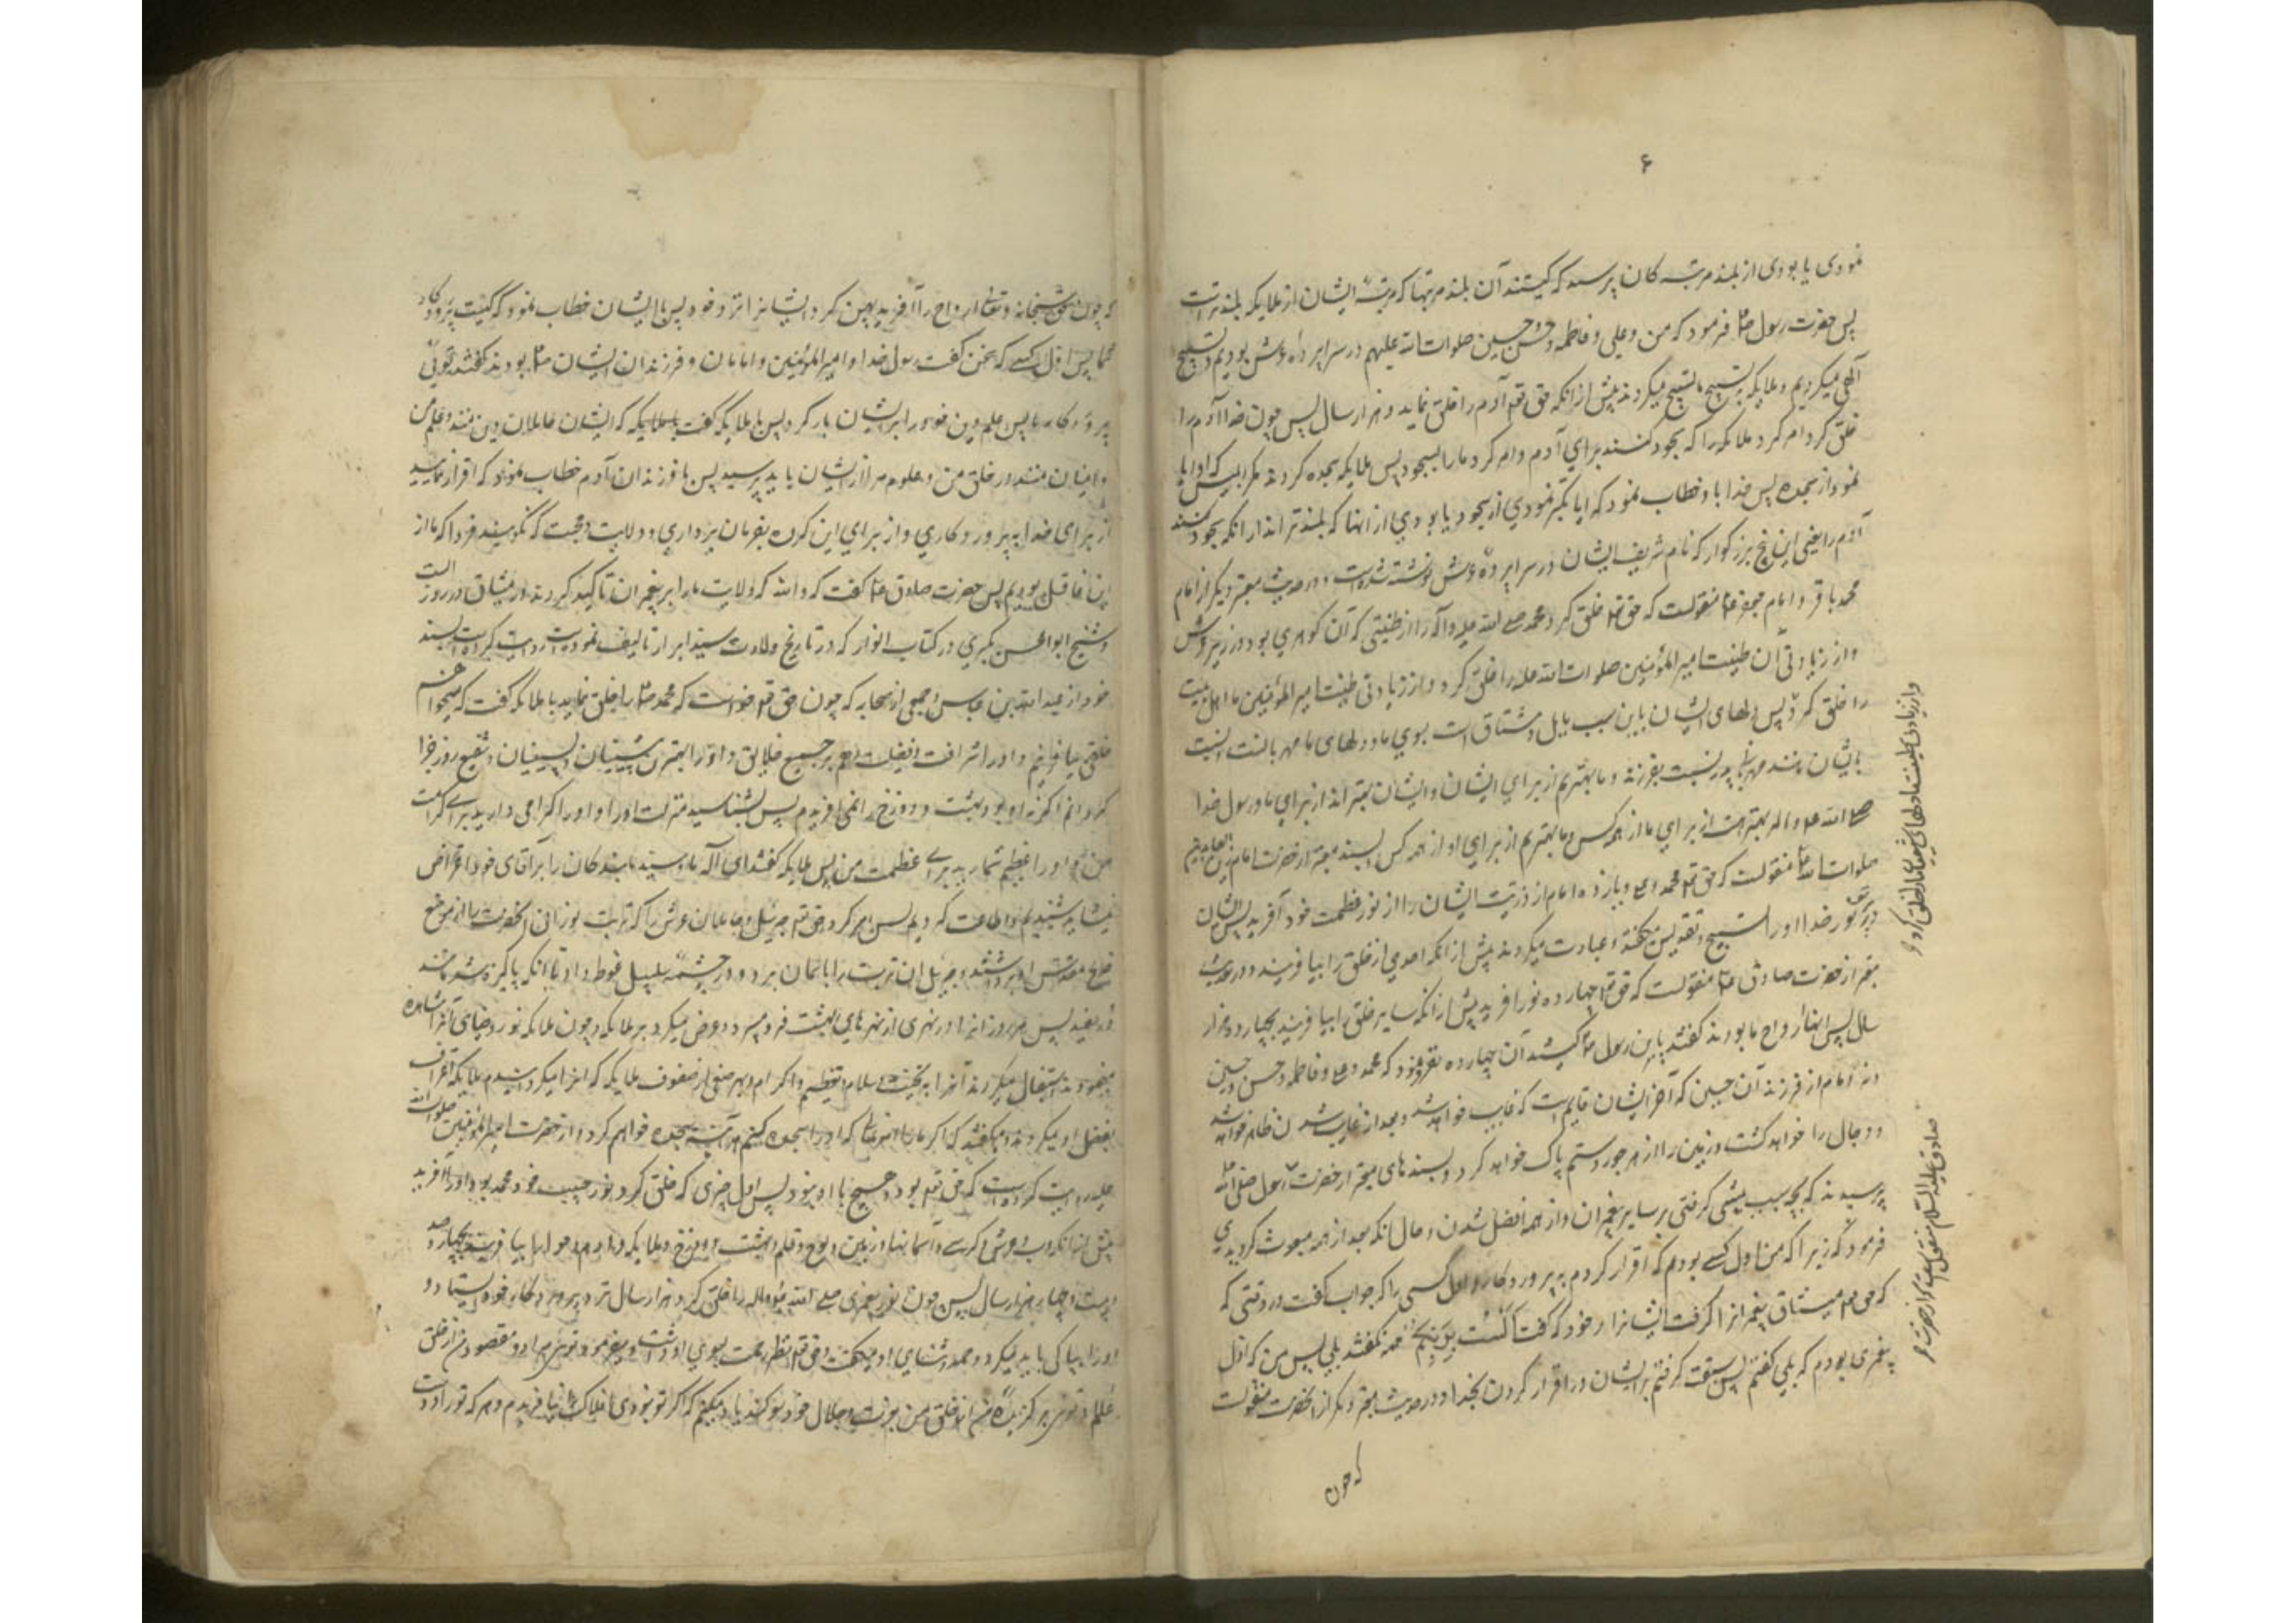 ۶
نمودی یا بودی از بلند مرتبه کان پرسید که کیستند آن بلند مرتبها که مرتبه ایشان از ملایکه بلندتر است
پس حضرت رسول ص فرمود که من و علی و فاطمه و حسن و حسین صلوات الله علیهم در سراپرده عرش بودیم و تسبیح
الهی میکردیم و ملایکه بتسبیح ما تسبیح میکردند پیش از انکه حق تع آدم را خلق نماید دو هزار سال پس چون خدا آدم را
خلق کرد امر کرد ملایکه را که سجود کنند برای آدم و امر نکرد ما را بسجود پس ملایکه سجده کردند مگر ابلیس که او ابا
نمود از سجده پس خدا با و خطاب نمود که ایا تکبر نمودی از سجود یا بودی از انها که بلندتر اند از انکه سجود کنند
آدم را یعنی این پنج بزرگوار که نام شریف ایشان در سراپرده عرش نوشته شده است و در حدیث معتبر دیگر از امام
محمد باقر و امام جعفر ع منقولست که حق تع خلق کرد محمد صلی الله علیه و آله را از طینتی که آن گوهری بود در زیر عرش
و از زیادتی آن طینت امیر المؤمنین صلوات الله علیه را خلق کرد و از زیادتی طینت امیر المؤمنین ما اهل بیت
را خلق کرد پس دلهای ایشان باین سبب مایل و مشتاق است بسوی ما و دلهای ما مهربانست نسبت
بایشان مانند مهربانی پدر نسبت بفرزند و ما بهتریم از برای ایشان و ایشان بهتر اند از برای ما و رسول خدا
صلی الله علیه و اله بهتر است از برای ما از همه کس و ما بهتریم از برای او از همه کس و بسند معتبر از حضرت امام زین العابدین
صلوات الله علیه منقولست که حق تع محمد و علی و یازده امام از ذریت ایشان را از نور عظمت خود آفرید پس ایشان
در پرتو نور خدا او را تسبیح و تقدیس میگفتند و عبادت میکردند پیش از انکه احدی از خلق را بیافریند و در حدیث
معتبر از حضرت صادق ع منقولست که حق تع چهارده نور آفرید پیش از انکه سایر خلق را بیافریند بچهارده هزار
سال پس انها ارواح ما بودند گفتند یابن رسول الله کیستند آن چهارده نفر فرمود که محمد و علی و فاطمه و حسن و حسین
و نه امام از فرزندان حسین که آخر ایشان قایم است که غایب خواهد شد و بعد از غایب شدن ظاهر خواهد شد
و دجال را خواهد کشت و زمین را از هر جور و ستم پاک خواهد کرد و بسندهای معتبر از حضرت رسول صلی الله علیه
پرسیدند که بچه سبب پیشی گرفتی بر سایر پیغمبران و از همه افضل شدن و حال انکه بعد از همه مبعوث گردیدی
فرمود که زیرا که من اول کسی بودم که اقرار کردم به پروردگار و اول کسی را که جواب گفت در وقتی که
که حق تع میثاق پیغمبرانرا گرفت ایشانرا بر خود که گفت الست بربکم همه گفتند بلی پس من که اول
پیغمبری بودم که بلی گفتم پس سبقت گرفتم بر ایشان در اقرار کردن بخدا و در حدیث معتبر دیگر از انحضرت منقولست
که چون
و از زیادتی طینت ما دلهای شیعیان ما را خلق کرد
صادق علیه السلام منقول است که از حضرت
که چون حق سبحانه و تعالی ارواح را آفرید پهن کرد ایشانرا نزد خود پس با ایشان خطاب نمود که کیست پروردگار
شما پس اول کسی که سخن گفت رسول خدا و امیر المؤمنین و امامان و فرزندان ایشان ص بودند گفتند توئی
پروردگار ما پس علم و دین خود را بر ایشان بار کرد پس با ملایکه گفت که ایشان حاملان دین منند و علم من
و امینان منند در خلق من و علوم مرا از ایشان باید پرسید پس با فرزندان آدم خطاب نمود که اقرار نمایید
از برای خدا به پروردگاری و از برای این گروه بفرمان برداری و ولایت و محبت که نگویند فردا که ما از
این غافل بودیم پس حضرت صادق ع گفت که والله که ولایت ما را بر پیغمبران تاکید کردند در میثاق در روز الست
و شیخ ابو الحسن بکری در کتاب انوار که در تاریخ ولادت سید ابرار تالیف نموده است روایت کرده است بسند
خود از عبد الله بن عباس و جمعی از صحابه که چون حق تع خواست که محمد ص را خلق نماید با ملایکه گفت که میخواهم
خلقی بیافرینم و او را شرافت و فضیلت دهم بر جمیع خلایق و او را بهترین پیشینیان و پسینیان و شفیع روز جزا
گردانم اگر نه او بود بهشت و دوزخ را نمی آفریدم پس بشناسید منزلت او را و او را گرامی دارید برای کرامت
من و او را عظیم شمارید برای عظمت من پس ملایکه گفتند ای اله ما و سید ما بندگان را بر آقای خود اعتراض
نمیباشد شنیدیم و اطاعت کردیم پس امر کرد حق تع جبرئیل و حاملان عرش را که تربت نورانی انحضرت را از موضع
ضریح مقدس او برداشتند و جبرئیل ان تربت را باسمان برد و در چشمه سلسبیل غوطه داد تا انکه پاکیزه شد مانند
در سفید پس هر روز انرا در نهری از نهرهای بهشت فرو میبرد و عرض میکرد بر ملایکه و چون ملایکه نور و ضیای آنرا مشاهده
مینمودند استقبال میکردند آنرا به تحیت و سلام و تعظیم و اکرام و بهر صفی از صفوف ملایکه که انرا میگردانیدم ملایکه اعتراف
بفضل او میکردند و میگفتند که اگر ما را امر نمائی که او را سجده کنیم هر آینه سجده خواهیم کرد و از حضرت امیر المؤمنین صلوات الله
علیه روایت کرده است که حق تع بود و هیچ با او نبود پس اول چیزی که خلق کرد نور حبیب خود محمد بود و او را آفرید
پیش از انکه آب و عرش و کرسی و آسمانها و زمین و لوح و قلم و بهشت و دوزخ و ملایکه و آدم و حوا را بیافریند بچهارصد
و بیست و چهار هزار سال پس چون نور پیغمبری صلی الله علیه و اله را خلق کرد هزار سال نزد پروردگار خود ایستاد و
او را بپاکی یاد میکرد و حمد و ثنای او میگفت و حق تع نظر رحمت بسوی او داشت و میفرمود توئی مراد و مقصود من از خلق
عالم و توئی برگزیده من از خلق من بعزت و جلال خود سوگند یاد میکنم که اگر تو نبودی افلاک را نمی آفریدم و هر که تو را دوست